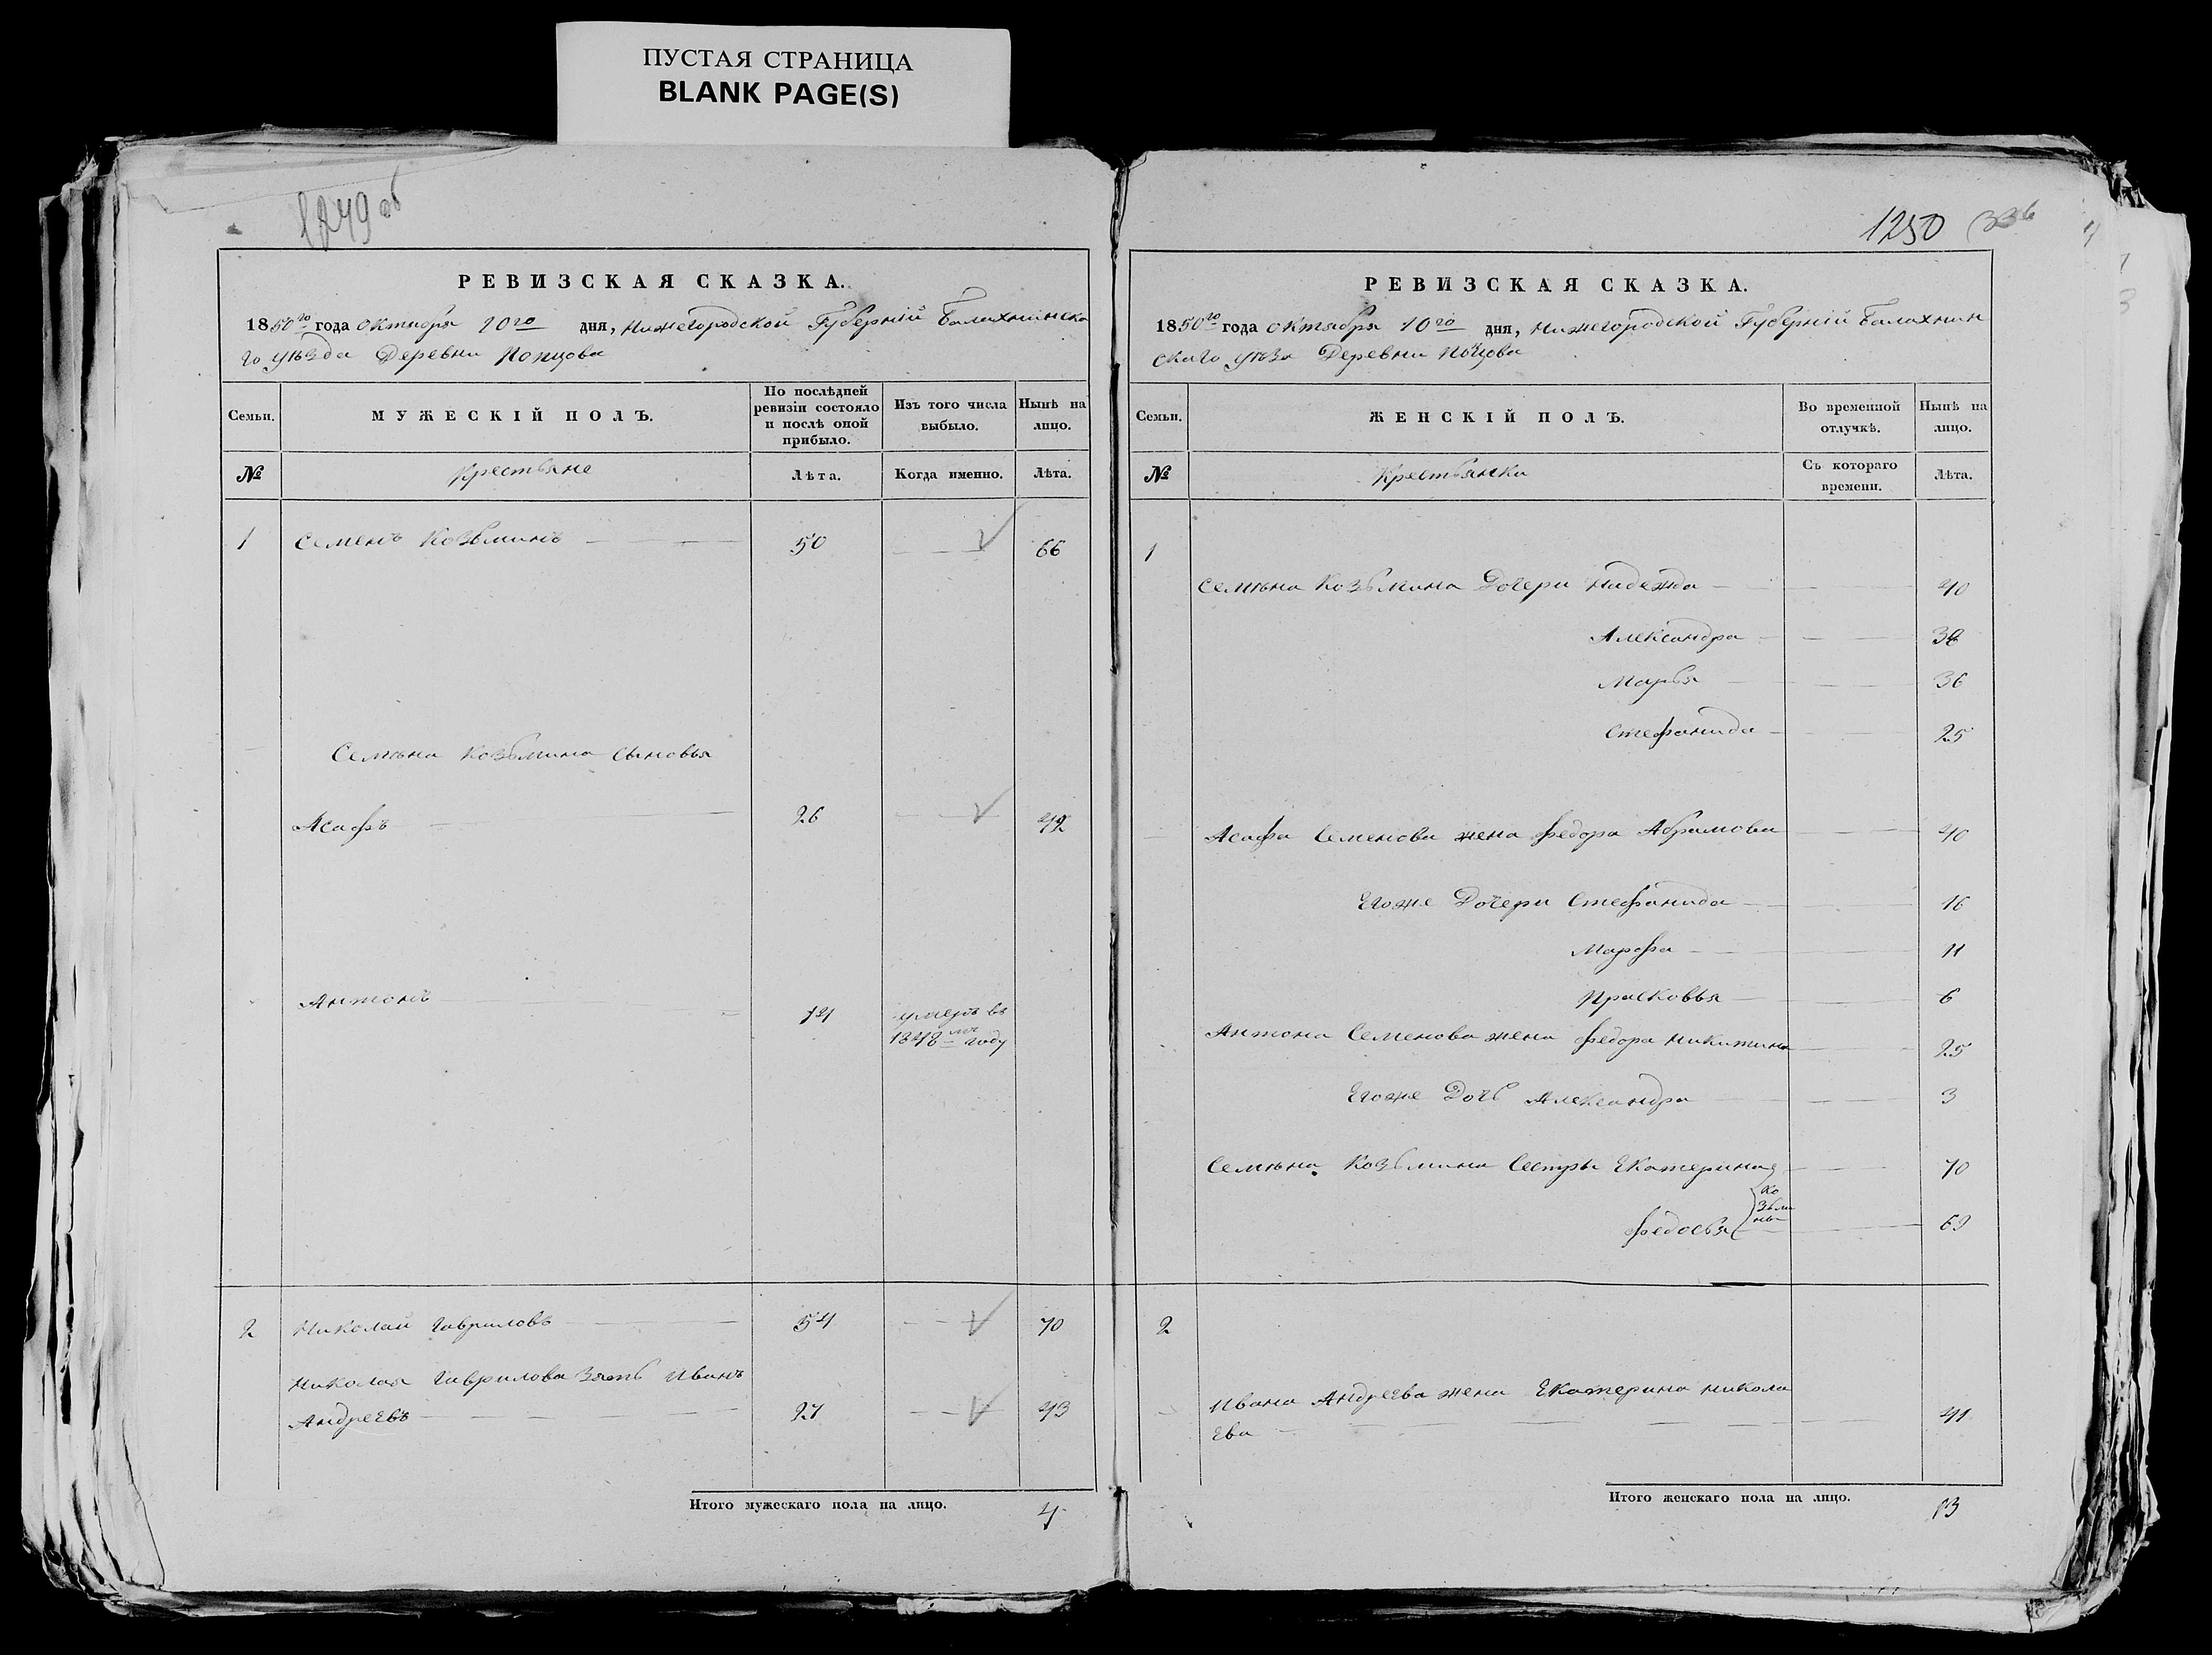 ПУСТАЯ СТРАНИЦА
BLANK PAGE(S)
1249 об
РЕВИЗСКАЯ СКАЗКА.
1850го года октября 10го дня, Нижегородской Губерній Балахнинска
го уѣзда Деревни Попцова
Семьи. МУЖЕСКІЙ ПОЛЪ. По послѣдней ревизіи состояло и послѣ оной прибыло. Изъ того числа выбыло. Нынѣ на лицо.
№ Крестьяне Лѣта. Когда именно. Лѣта.
1 Семенъ Козьминъ 50 66
Семѣна Козьмина сыновья
Асафъ 26 42
Антонъ 14 умеръ въ
1848мъ году
2 Николай Гавриловъ 54 70
Николая Гаврилова зять Иванъ
Андреевъ 27 43
Итого мужескаго пола на лицо. 4
1250 336
РЕВИЗСКАЯ СКАЗКА.
1850го года октября 10го дня, Нижегородской Губерній Балахнин
скаго уѣзда Деревни
Семьи. ЖЕНСКІЙ ПОЛЪ. Во временной отлучкѣ. Нынѣ на лицо.
№ Крестьянки Съ котораго времени. Лѣта.
1
Семѣна Козьмина Дочери Надежда 40
Александра
Марья 36
Стефанида 25
Асафа Семенова жена Федора Абрамова 40
Егоже Дочери Стефанида 16
Марфа 11
Прасковья 6
Антона Семенова жена Федора Никитина 25
Егоже Дочь Александра 3
Семѣна Козьмина Сестры Екатерина 70
Козьмины
Федосья 69
2
Ивана Андреева жена Екатерина Никола
ева 41
Итого женскаго пола на лицо. 13